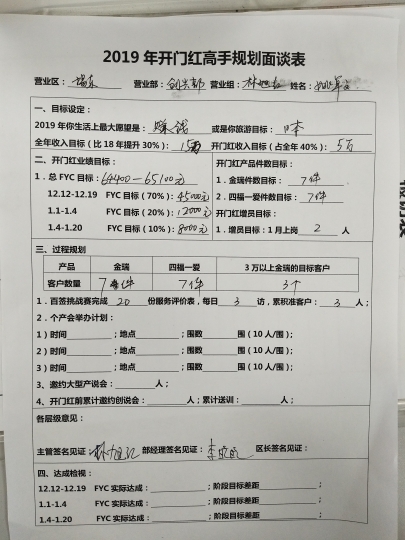 2019年开门红高手规划面谈表
营业区： 营业部：创兴部 营业组： 姓名：
一、目标设定：
2019年你生活上最大愿望是：赚钱 或是你旅游目标：日本
全年收入目标（比18年提升30%）： 开门红收入目标（占全年40%）：5万
二、开门红业绩目标：
1．总FYC目标：64400—65100元
12.12-12.19 FYC目标（70%）：45000元
1.1-1.4 FYC目标（20%）：12000元
1.4-1.20 FYC目标（10%）：8000元
开门红产品件数目标：
1．金瑞件数目标：7件
2．四福一爱件数目标：7件
开门红增员目标：
1．增员目标：1月上岗 2 人
三、过程规划
产品 金瑞 四福一爱 3万以上金瑞的目标客户
客户数量 7件 7件 3个
1．百签挑战赛完成 20 份服务评价表，每日 3 访，累积准客户：3 人；
2．个产会举办计划：
1）时间 ；地点 ；围数 围（10人/围）；
2）时间 ；地点 ；围数 围（10人/围）；
3）时间 ；地点 ；围数 围（10人/围）；
3、邀约大型产说会： 人；
4、开门红前累计邀约创说会： 人；累计送训： 人；
各层级意见：
主管签名见证： 部经理签名见证： 区长签名见证：
四、达成检视：
12.12-12.19 FYC实际达成： ；阶段目标差距 ；
1.1-1.4 FYC实际达成： ；阶段目标差距 ；
1.4-1.20 FYC实际达成： ；阶段目标差距 ；